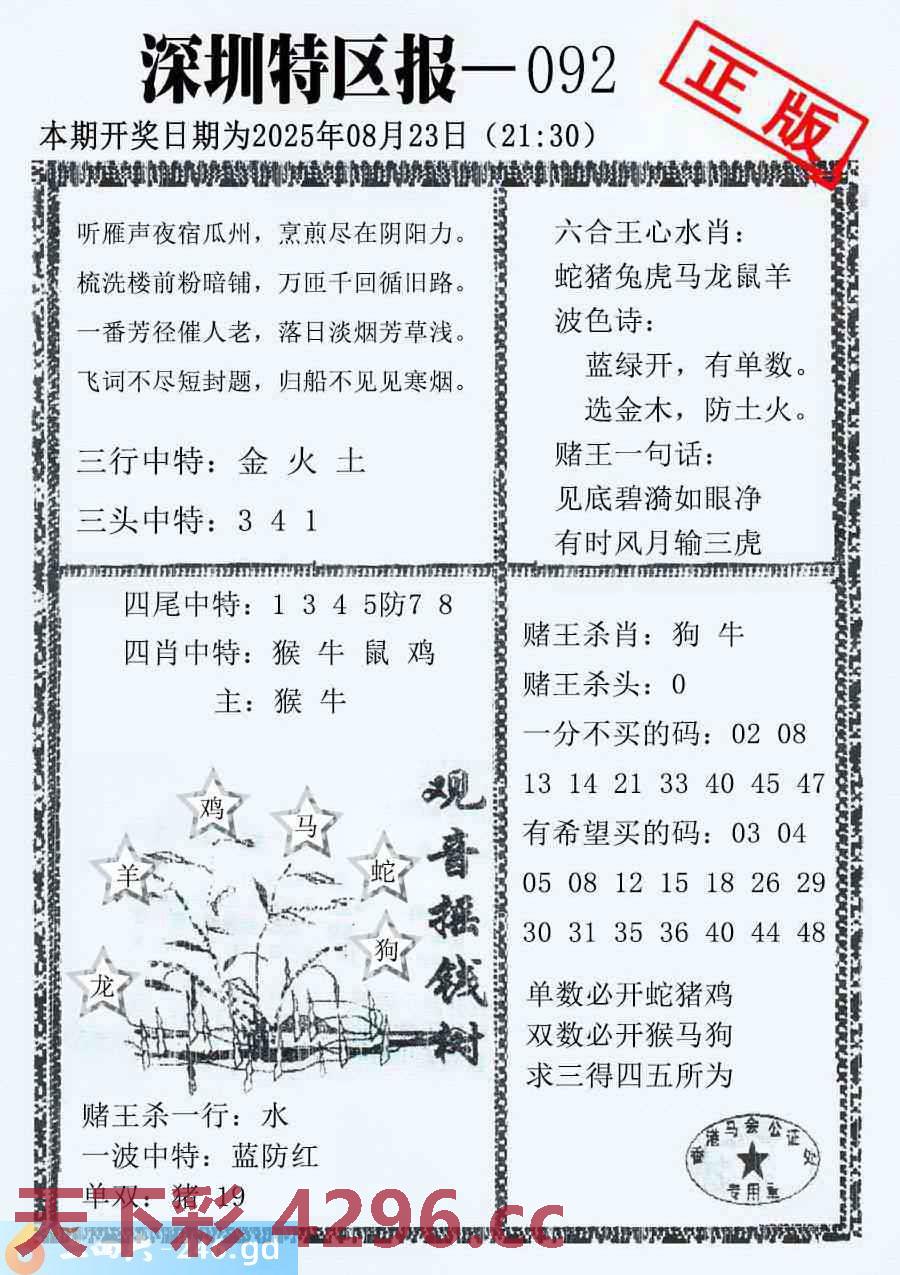 深圳特区报—092
正版
本期开奖日期为2025年08月23日（21:30）
听雁声夜宿瓜州，烹煎尽在阴阳力。
梳洗楼前粉暗铺，万匝千回循旧路。
一番芳径催人老，落日淡烟芳草浅。
飞词不尽短封题，归船不见见寒烟。
三行中特：金 火 土
三头中特：3 4 1
六合王心水肖：
蛇猪兔虎马龙鼠羊
波色诗：
蓝绿开，有单数。
选金木，防土火。
赌王一句话：
见底碧漪如眼净
有时风月输三虎
四尾中特：1 3 4 5防7 8
四肖中特：猴 牛 鼠 鸡
主：猴 牛
观音摇钱树
鸡
马
羊
蛇
狗
龙
赌王杀一行：水
一波中特：蓝防红
单双：猪 19
赌王杀肖：狗 牛
赌王杀头：0
一分不买的码：02 08
13 14 21 33 40 45 47
有希望买的码：03 04
05 08 12 15 18 26 29
30 31 35 36 40 44 48
单数必开蛇猪鸡
双数必开猴马狗
求三得四五所为
香港马会公证处
专用章
天下彩 4296.cc